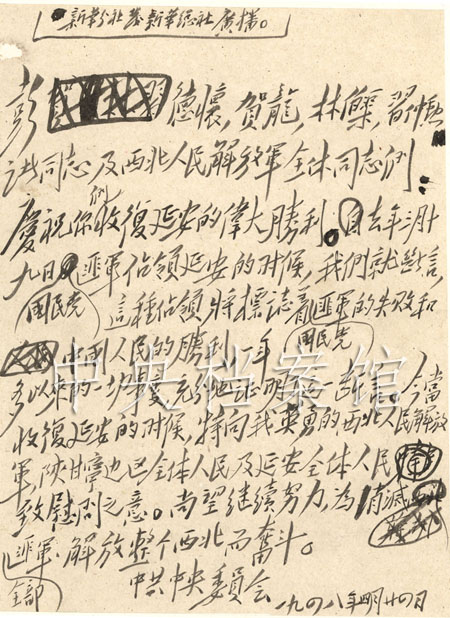 新華總社廣播。
彭德懷,賀龍,林伯渠,習仲勛
諸同志及西北人民解放軍全体同志們:
慶祝你們收復延安的偉大勝利。自去年三月十
九日國民党匪軍佔領延安的时候,我們就断言,
這種佔領將標誌着國民党匪軍的失败和
中國人民的勝利。一年
多以來的一切事变充分地证明了这一断言。今當
收復延安的时候,特向我英勇的西北人民解放
軍,陝甘寧边区全体人民及延安全体人民
致慰問之意。尚望继续努力,為消滅
全部匪軍、解放整个西北而奮斗。
中共中央委員会
一九四八年四月廿四日
中央档案馆